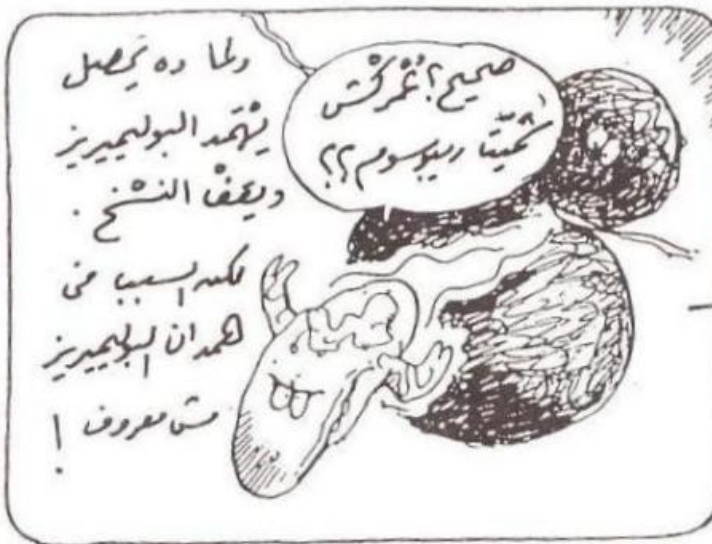 ولما ده يحصل
يهمد البوليميريز
ويقف النسخ .
لكن السبب فى
همدان البوليميريز
مش معروف !
صحيح؟
ريبوسوم؟؟